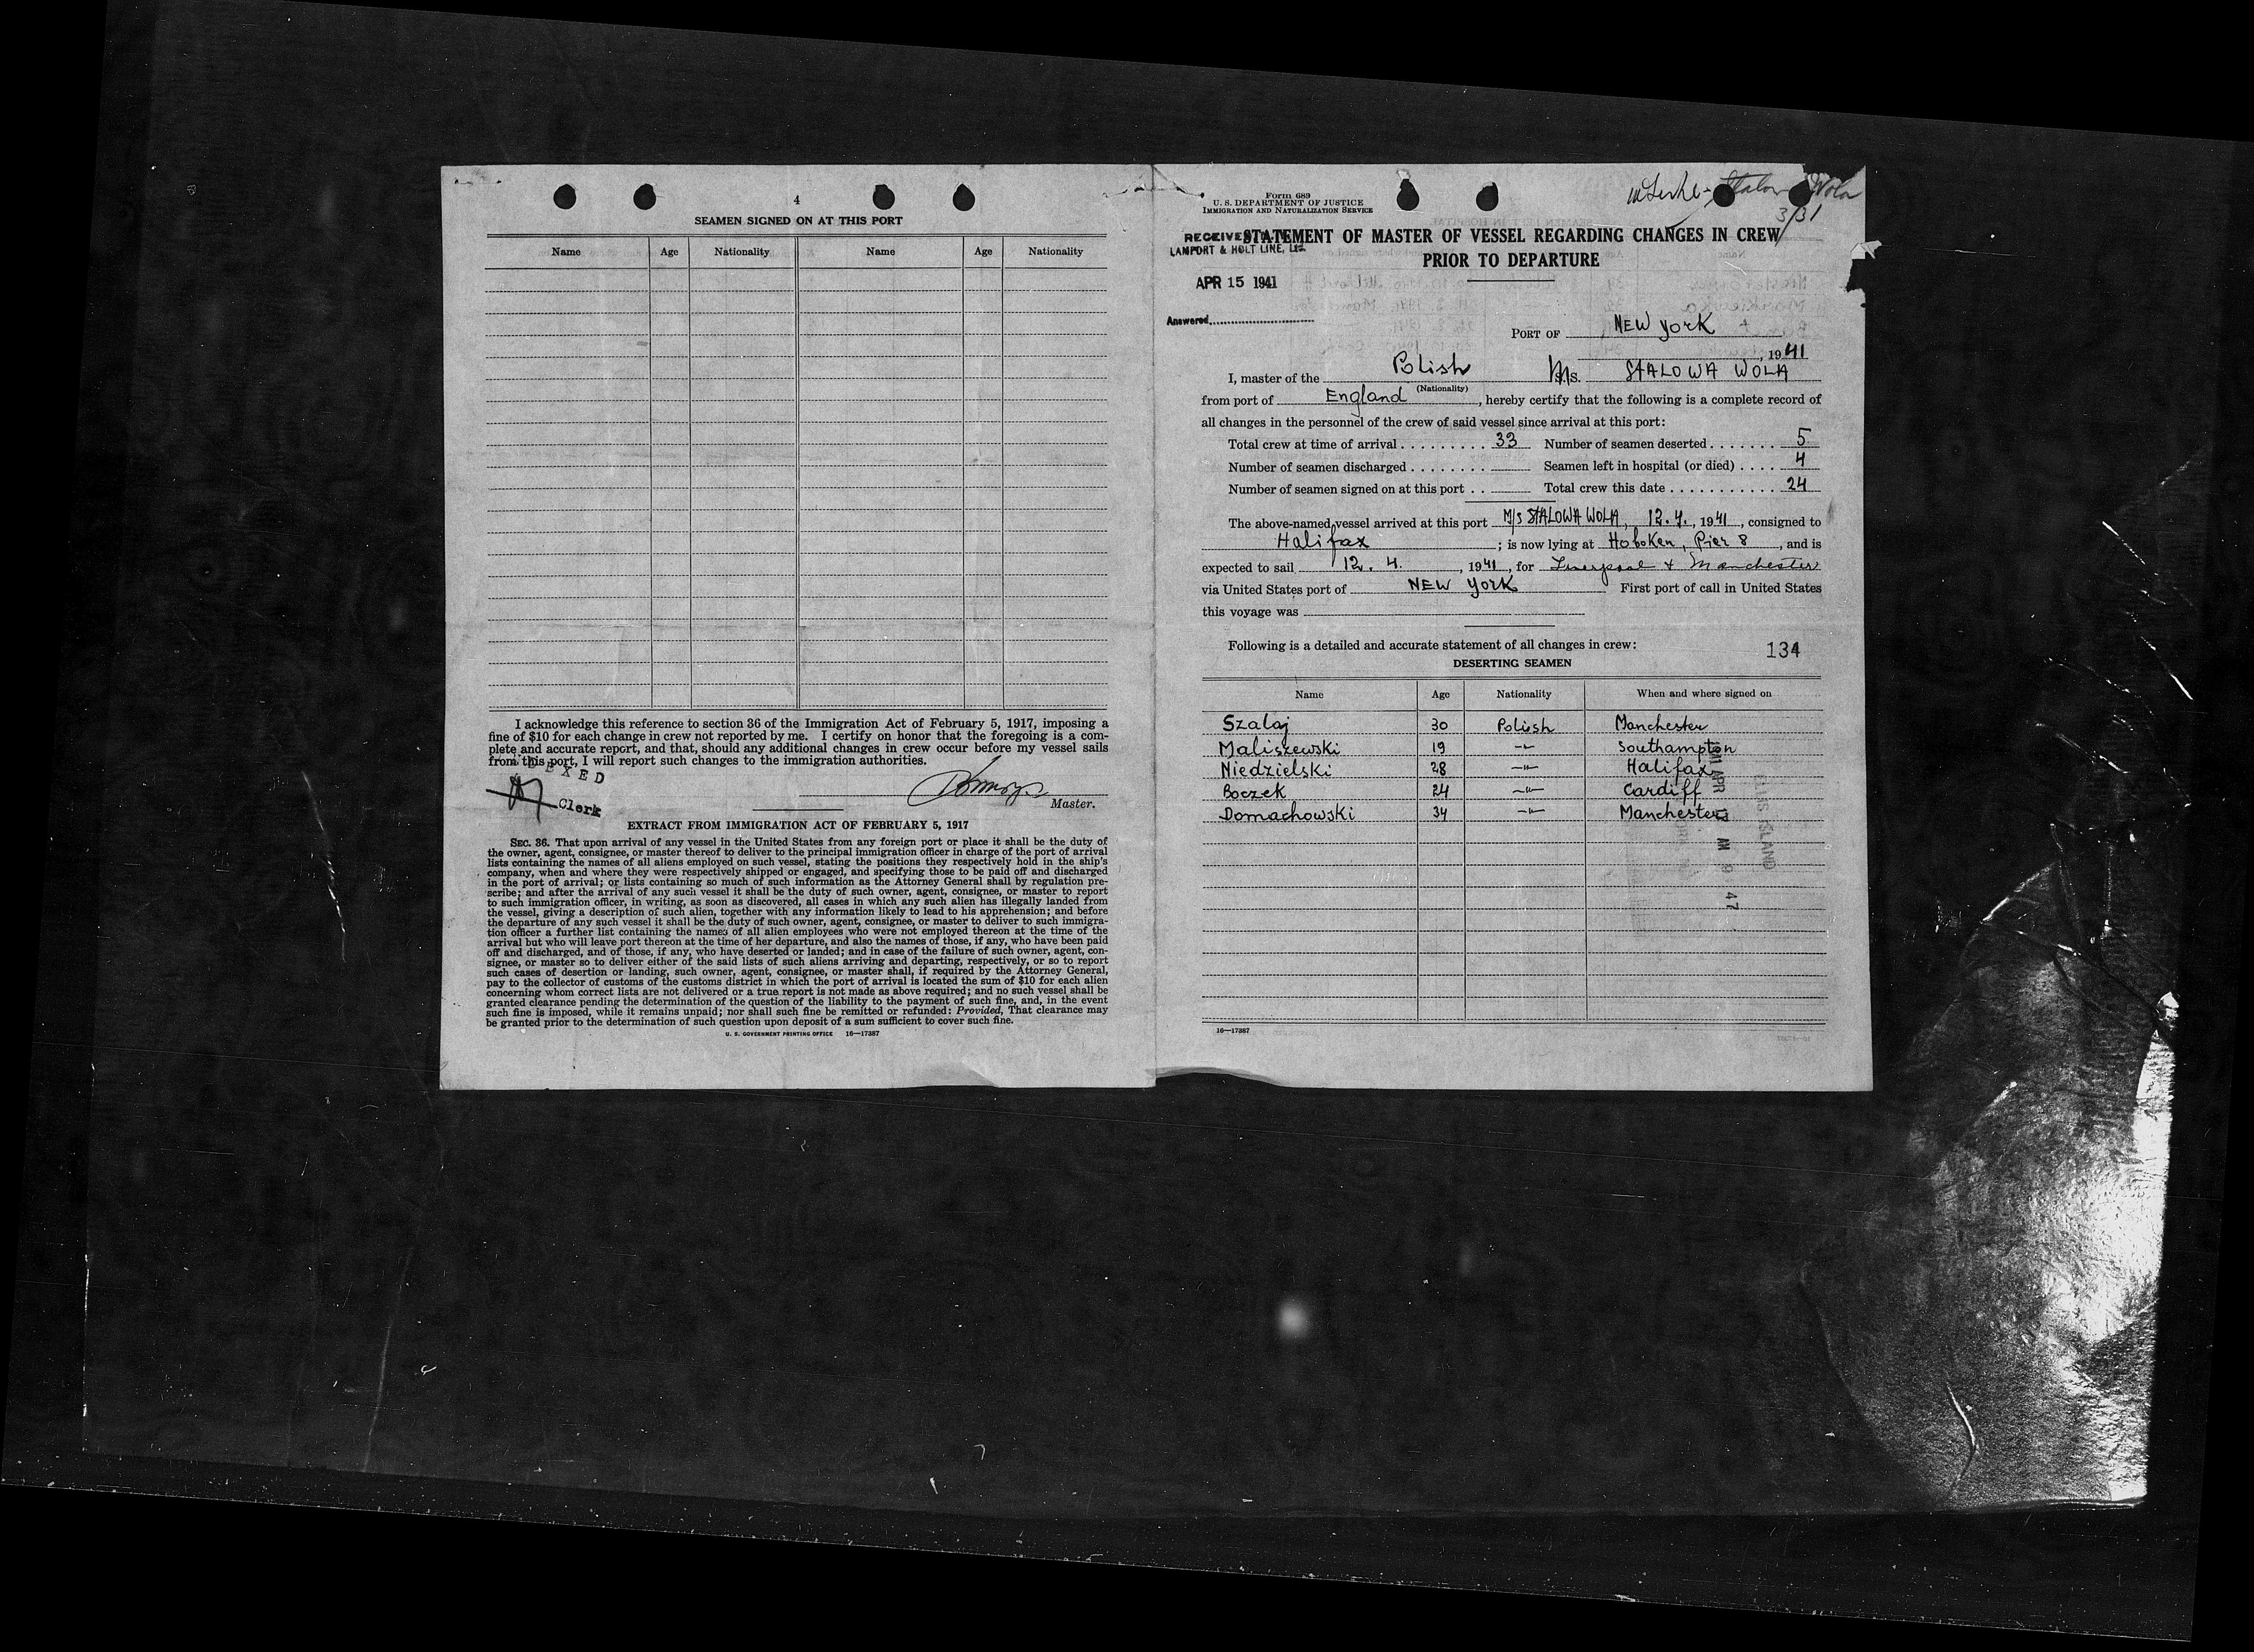 4
SEAMEN SIGNED ON AT THIS PORT
Name Age Nationality Name Age Nationality
I acknowledge this reference to section 36 of the Immigration Act of February 5, 1917, imposing a
fine of $10 for each change in crew not reported by me. I certify on honor that the foregoing is a com-
plete and accurate report, and that, should any additional changes in crew occur before my vessel sails
from this port, I will report such changes to the immigration authorities.
Clerk
Master.
EXTRACT FROM IMMIGRATION ACT OF FEBRUARY 5, 1917
SEC. 36. That upon arrival of any vessel in the United States from any foreign port or place it shall be the duty of
the owner, agent, consignee, or master thereof to deliver to the principal immigration officer in charge of the port of arrival
lists containing the names of all aliens employed on such vessel, stating the positions they respectively hold in the ship's
company, when and where they were respectively shipped or engaged, and specifying those to be paid off and discharged
in the port of arrival; or lists containing so much of such information as the Attorney General shall by regulation pre-
scribe; and after the arrival of any such vessel it shall be the duty of such owner, agent, consignee, or master to report
to such immigration officer, in writing, as soon as discovered, all cases in which any such alien has illegally landed from
the vessel, giving a description of such alien, together with any information likely to lead to his apprehension; and before
the departure of any such vessel it shall be the duty of such owner, agent, consignee, or master to deliver to such immigra-
tion officer a further list containing the names of all alien employees who were not employed thereon at the time of the
arrival but who will leave port thereon at the time of her departure, and also the names of those, if any, who have been paid
off and discharged, and of those, if any, who have deserted or landed; and in case of the failure of such owner, agent, con-
signee, or master so to deliver either of the said lists of such aliens arriving and departing, respectively, or so to report
such cases of desertion or landing, such owner, agent, consignee, or master shall, if required by the Attorney General,
pay to the collector of customs of the customs district in which the port of arrival is located the sum of $10 for each alien
concerning whom correct lists are not delivered or a true report is not made as above required; and no such vessel shall be
granted clearance pending the determination of the question of the liability to the payment of such fine, and, in the event
such fine is imposed, while it remains unpaid; nor shall such fine be remitted or refunded: Provided, That clearance may
be granted prior to the determination of such question upon deposit of a sum sufficient to cover such fine.
U. S. GOVERNMENT PRINTING OFFICE 16—17387
Form 689
U. S. DEPARTMENT OF JUSTICE
IMMIGRATION AND NATURALIZATION SERVICE
Stalowa Wola
3/31
RECEIVED
LAMPORT & HOLT LINE, Ltd.
APR 15 1941
Answered
STATEMENT OF MASTER OF VESSEL REGARDING CHANGES IN CREW
PRIOR TO DEPARTURE
PORT OF NEW York
, 1941
I, master of the Polish Ms. STALOWA WOLA
(Nationality)
from port of England, hereby certify that the following is a complete record of
all changes in the personnel of the crew of said vessel since arrival at this port:
Total crew at time of arrival 33 Number of seamen deserted 5
Number of seamen discharged Seamen left in hospital (or died) 4
Number of seamen signed on at this port Total crew this date 24
The above-named vessel arrived at this port M/S STALOWA WOLA, 12.4., 1941, consigned to
Halifax ; is now lying at Hoboken, Pier 8, and is
expected to sail 12. 4., 1941, for Liverpool & Manchester
via United States port of NEW York First port of call in United States
this voyage was
Following is a detailed and accurate statement of all changes in crew:
134
DESERTING SEAMEN
Name Age Nationality When and where signed on
Szalaj 30 Polish Manchester
Maliszewski 19 -"- Southampton
Niedzielski 28 -"- Halifax
Boczek 24 -"- Cardiff
Domachowski 34 -"- Manchester
ELLIS ISLAND
1941 APR 17 AM 9 47
16—17387